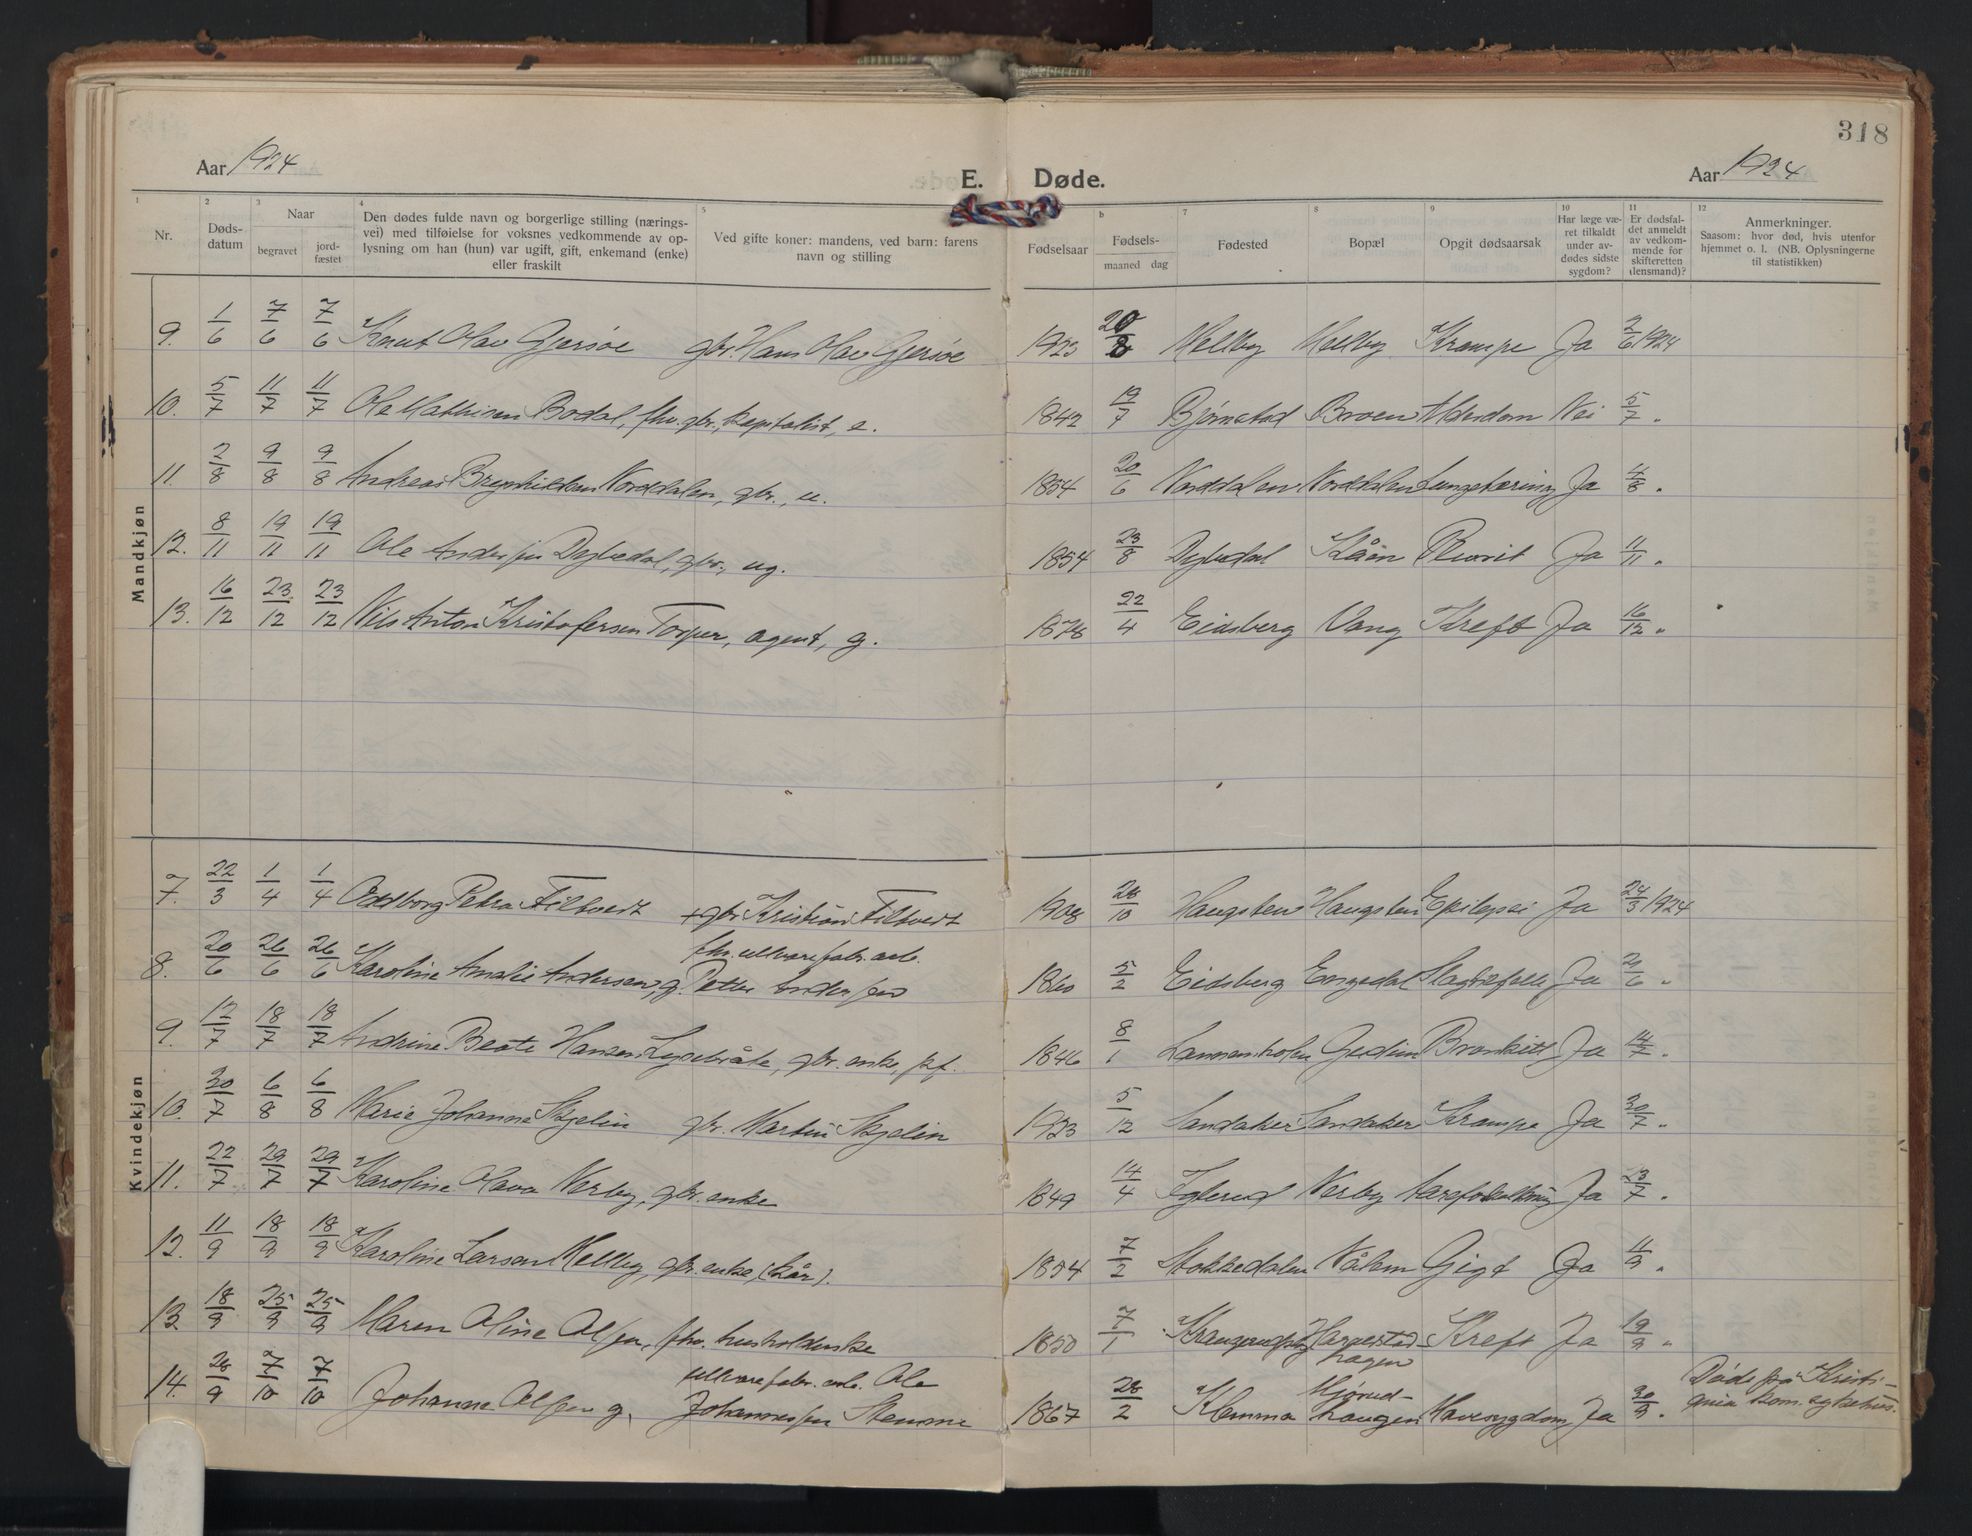 318
Aar 1924 E. Døde. Aar 1924
1 2 3 4 5 b 7 8 9 10 11 12
Nr. Dødsdatum Naar begravet jordfæstet
Den dødes fulde navn og borgerlige stilling (nærings-
vei) med tilføielse for voksnes vedkommende av op-
lysning om han (hun) var ugift, gift, enkemand (enke)
eller fraskilt
Ved gifte koner: mandens, ved barn: farens
navn og stilling
Fødselsaar Fødsels- maaned dag Fødested Bopæl Opgit dødsaarsak
Har læge væ-
ret tilkaldt
under av-
dødes sidste
sygdom?
Er dødsfal-
det anmeldt
av vedkom-
mende for
skifteretten
(lensmand)?
Anmerkninger.
Saasom: hvor død, hvis utenfor
hjemmet o. l. (NB. Oplysningerne
til statistikken)
Mandkjøn
9. 1/6 7/6 7/6 Knut Olav Gjersøe gbr. Hans Olav Gjersøe 1923 20/8 Melleby Melleby Krampe Ja 2/6 1924
10. 5/7 11/7 11/7 Ole Mathisen Bodal, fhv. gbr., kapitalist, e. 1842 19/7 Bjørnstad Broen Alderdom Nei 5/7 "
11. 2/8 9/8 9/8 Andreas Norddalen, gbr., u. 1854 20/6 Norddalen Norddalen Lungetæring Ja 4/8 "
12. 8/11 19/11 19/11 Ole Andersen Dybedal, gbr., ug. 1854 23/8 Dybedal Kåen Pleurit Ja 11/11 "
13. 16/12 23/12 23/12 Nils Anton Kristofersen Torper, agent, g. 1878 22/4 Eidsberg Vang Kreft Ja 16/12 "
Kvindekjøn
7. 22/3 1/4 1/4 Oddborg Petra Filtvedt + gbr. Kristian Filtvedt 1908 28/10 Haugsten Haugsten Epilepsi Ja 24/3 1924
8. 20/6 26/6 26/6 Karoline Amalie Andersen, g. fhv. uldvarefabr. arb. Petter Andersen 1860 5/2 Eidsberg Engedal Slagtilfelle Ja 21/6 "
9. 12/7 18/7 18/7 Andrine Beate Hansen Lysebråte, gbr. enke, 1846 8/1 Bronkitt Ja 14/7 "
10. 30/7 6/8 6/8 Marie Johanne Skjelin gbr. Martin Skjelin 1923 5/12 Sandaker Sandaker Krampe Ja 30/7 "
11. 22/7 29/7 29/7 Karoline Olava Nerby, gbr. enke 1849 14/4 Iglerud Nerby Aareforkalkning Ja 23/7 "
12. 11/9 18/9 18/9 Karoline Larsen Melleby, gbr. enke (kår). 1854 7/2 Stokkedalen Gigt Ja 11/9 "
13. 18/9 25/9 25/9 Maren Oline Olsen, fhv. husholderske 1850 7/1 Harperstad-
hagen Kreft Ja 19/9 "
14. 28/9 7/10 7/10 Johanne Olsen g. uldvarefabr. arb. Ole
Johannessen Stemme 1867 28/2 Klemma Hjørud-
haugen Mavesygdom Ja 30/9 " Døde på Kristi-
ania kom. sykehus.